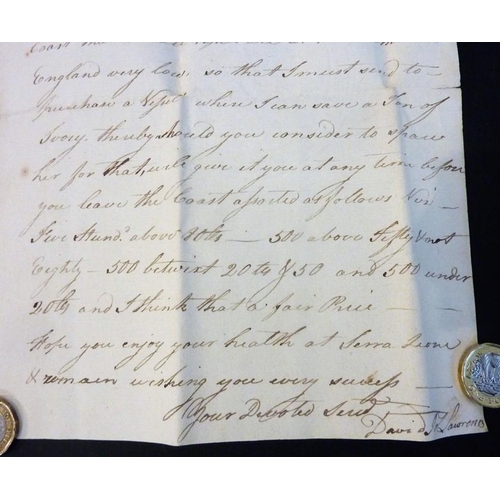 England very Low, so that I must send to
purchase a Vessel where I can save a Ton of
Ivory, thereby should you consider to spare
her for that, will give it you at any term before
you leave the Coast assorted as follows Viz:
Five Hund.d above 80 lb — 500 above Fifty & not
Eighty — 500 betwixt 20 lb & 50 and 500 under
20 lb and I think that a fair Price —
Hope you enjoy your health at Serra Leone
& remain wishing you every success —
Your Devoted Serv.
David Lawrence